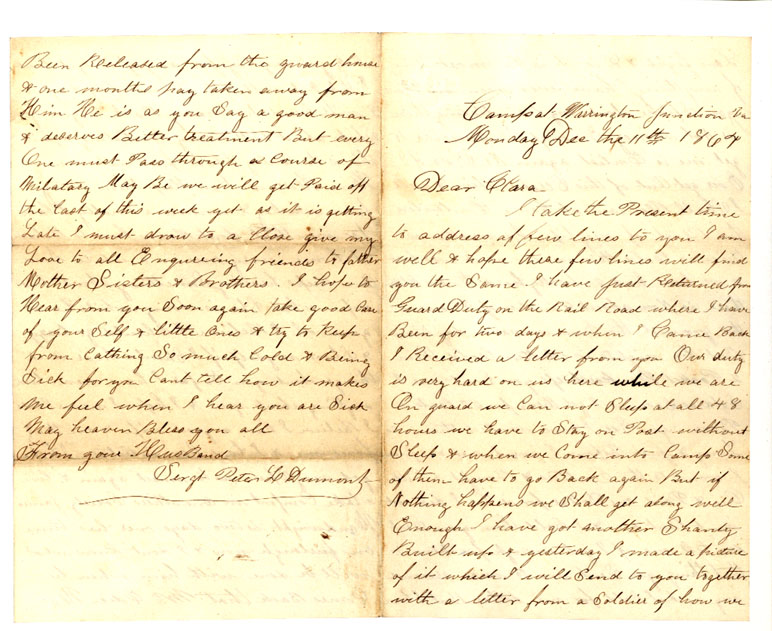 Camp at Warrington Junction Va
Monday Dec the 11th 1864
Dear Clara
I take the Present time
to address a few lines to you I am
well & hope these few lines will find
you the Same. I have just Returned from
Guard Duty on the Rail Road where I have
Been for two days & when I Came Back
I Received a letter from you Our duty
is very hard on us here while we are
On guard we Can not Sleep at all 48
hours we have to Stay on Post without
Sleep & when we Come into Camp Some
of them have to go Back again But if
Nothing happens we Shall get along well
Enough I have got another Shanty
Built up & yesterday I made a picture
of it which I will Send to you together
with a letter from a Soldier of how we
Been Released from the guard house
& one months pay taken away from
Him He is as you Say a good man
& deserves Better treatment But every
One must Pass through a Course of
Militatary May Be we will get Paid off
the last of this week yet as it is getting
Late I must draw to a Close give my
Love to all Enqureing friends to father
Mother Sisters & Brothers. I hope to
Hear from you Soon again take good Care
of your Self & little Ones & try to Keep
from Cathing So much Cold & Being
Sick for you Cant tell how it makes
Me feel when I hear you are Sick
May heaven Bless you all
From your Husband
Sergt Peter L Dumont